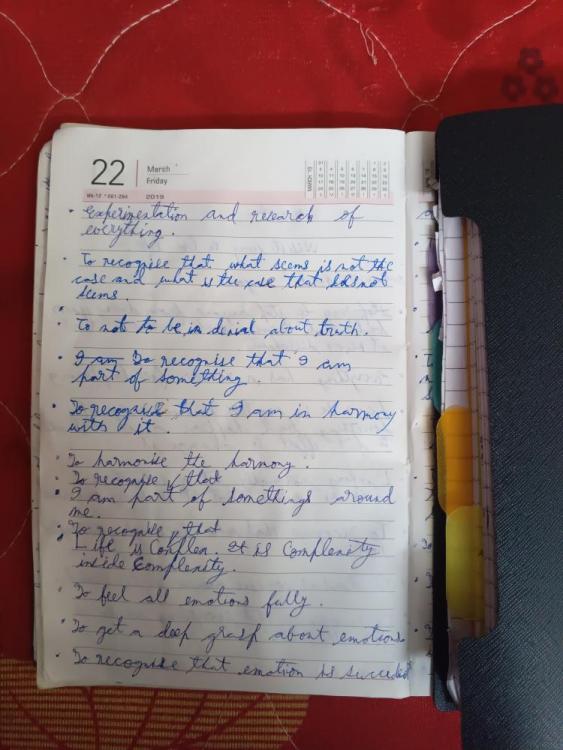 22
March
Friday
2019
• Experimentation and research of
everything.
• To recognise that what seems is not the
case and what is the case that is not
seems.
• To not to be in denial about truth.
• I am To recognise that I am
part of something
• To recognise that I am in harmony
with it.
• To harmonise the harmony.
• To recognise that
• I am part of somethings around
me.
• To recognise that
Life is Complex. It is Complexity
inside Complexity.
• To feel all emotions fully.
• To get a deep grasp about emotions
• To recognise that emotion is